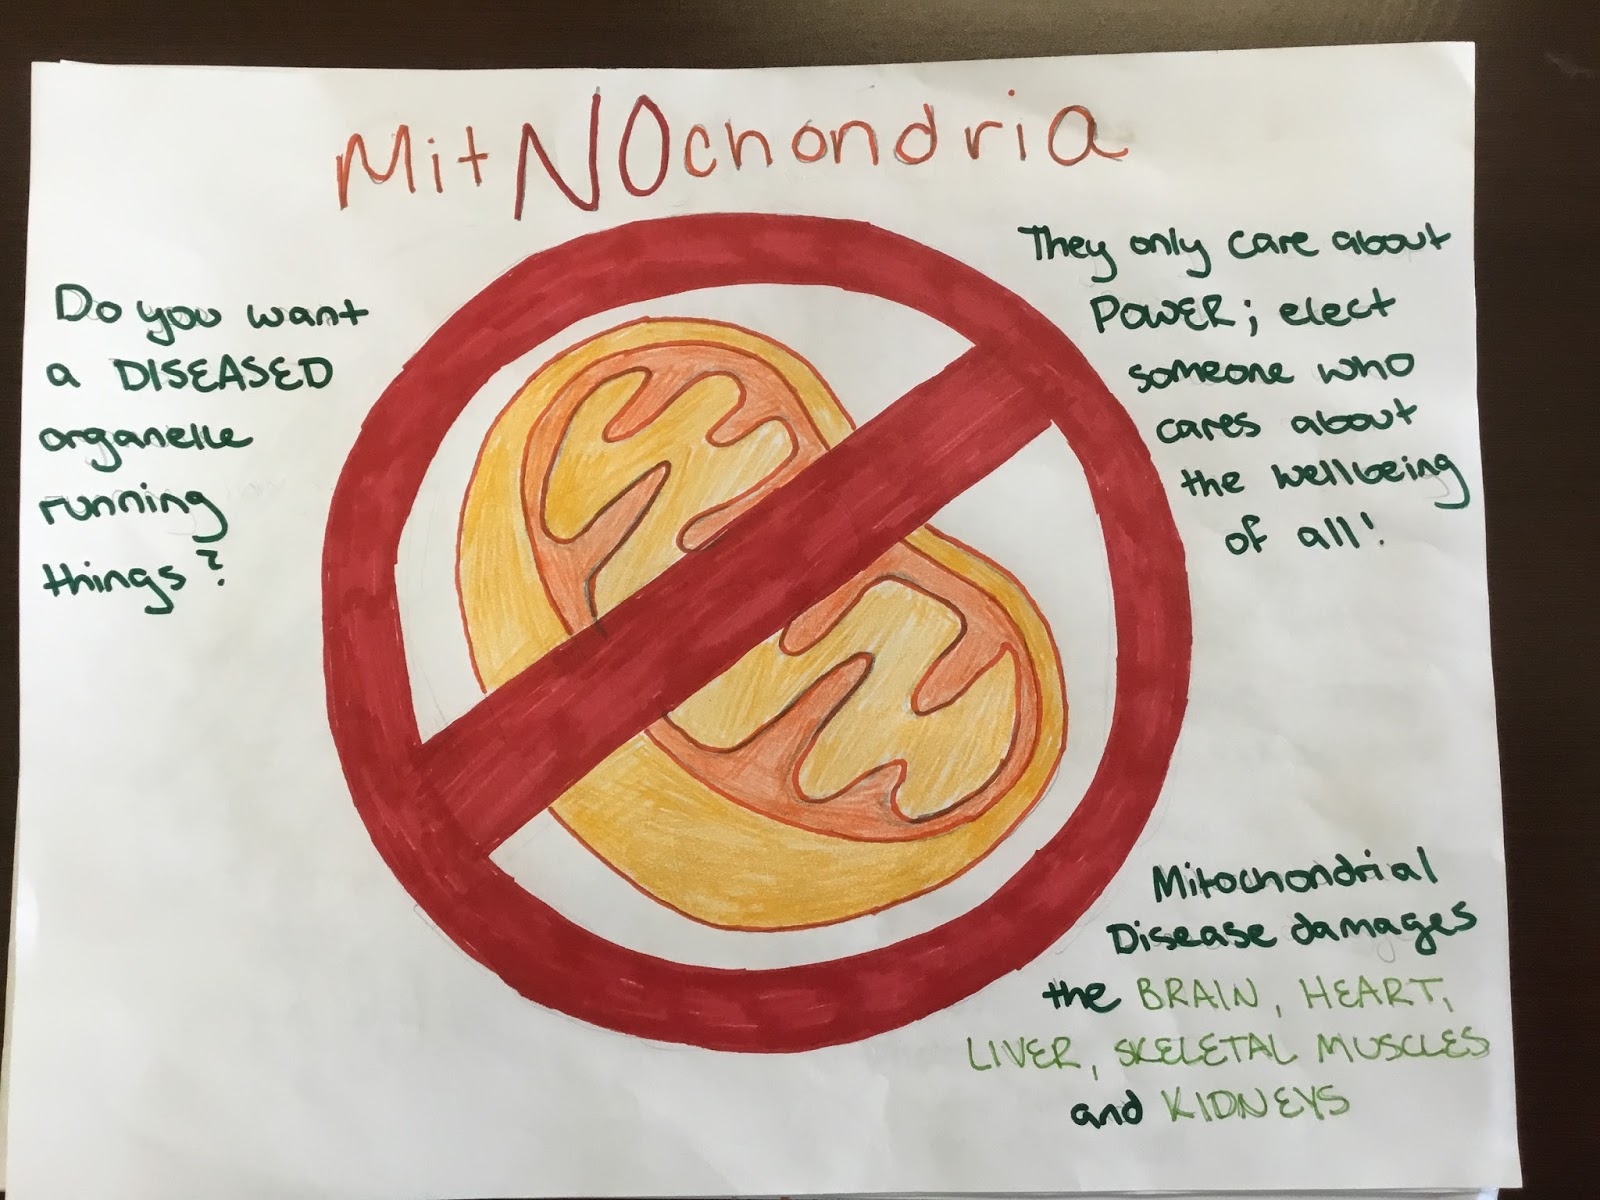 MitNOchondria
Do you want
a DISEASED
organelle
running
things?
They only care about
POWER; elect
someone who
cares about
the wellbeing
of all!
Mitochondrial
Disease damages
the BRAIN, HEART,
LIVER, SKELETAL MUSCLES
and KIDNEYS